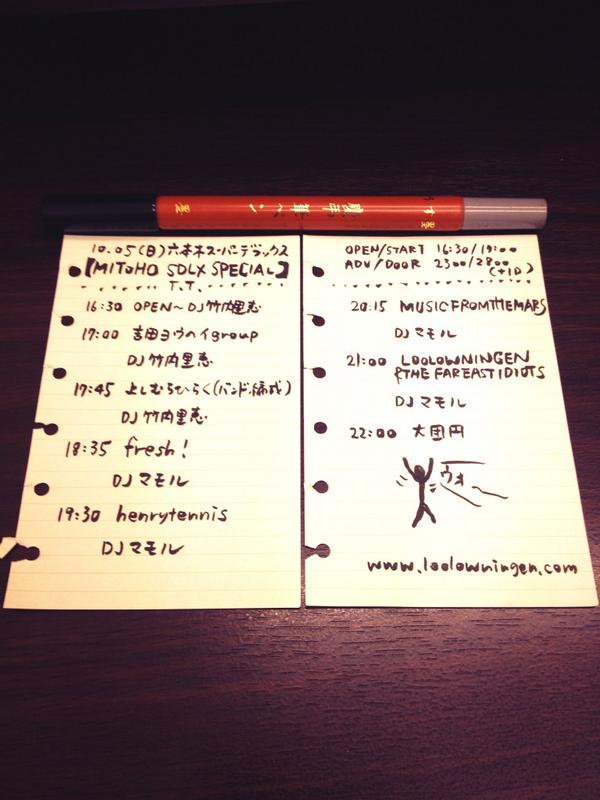 10.05(日)六本木スーパーデラックス
【MITOHO SDLX SPECIAL】
T.T.
16:30 OPEN〜DJ竹内里恵
17:00 吉田ヨウヘイgroup
DJ竹内里恵
17:45 よしむらひらく(バンド編成)
DJ竹内里恵
18:35 fresh!
DJマモル
19:30 henrytennis
DJマモル
OPEN/START 16:30/17:00
ADV/DOOR 2300/2800
(+1D)
20:15 MUSICFROMTHEMARS
DJマモル
21:00 LOOLOWNINGEN
&THE FAREASTIDIOTS
DJマモル
22:00 大団円
ウォー
www.loolowningen.com